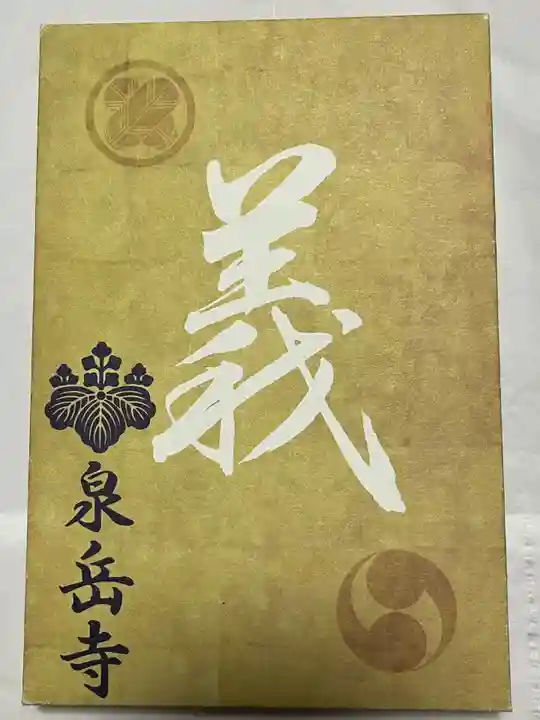 義
泉岳寺